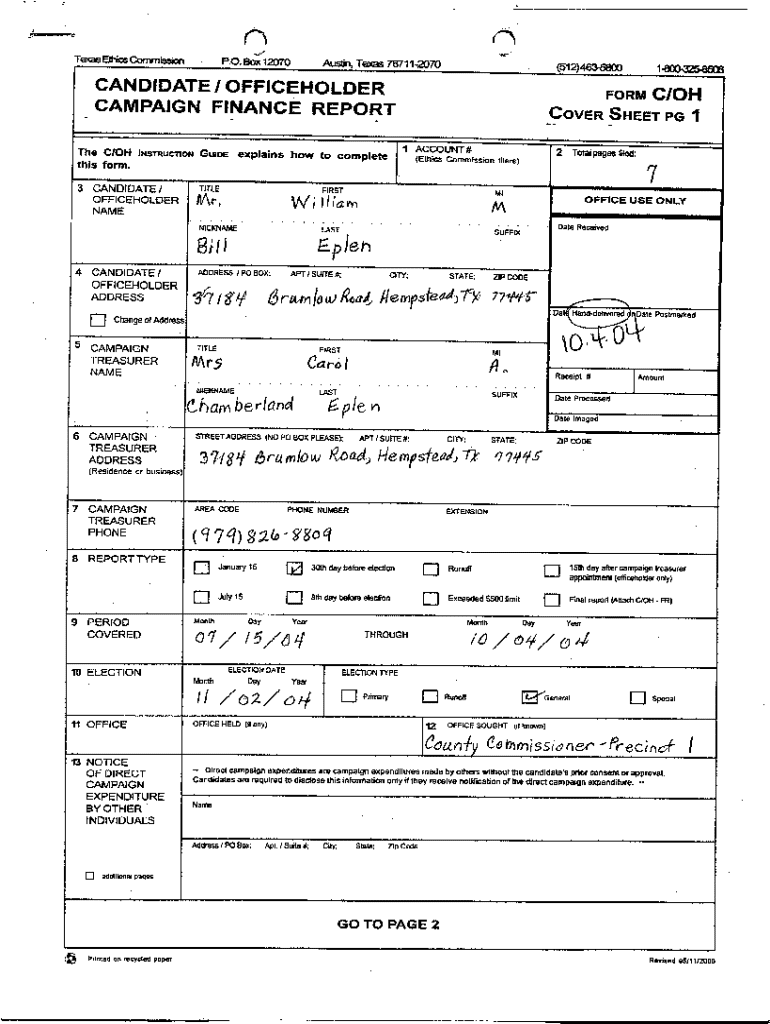 Texas Ethics Commission P.O. Box 12070 Austin, Texas 78711-2070 (512)463-5800 1-800-325-8506
CANDIDATE / OFFICEHOLDER
CAMPAIGN FINANCE REPORT
FORM C/OH
COVER SHEET PG 1
The C/OH INSTRUCTION GUIDE explains how to complete this form.
1 ACCOUNT #
(Ethics Commission filers)
2 Total pages filed:
7
3 CANDIDATE / OFFICEHOLDER NAME
TITLE FIRST MI
Mr. William M
NICKNAME LAST SUFFIX
Bill Eplen
OFFICE USE ONLY
Date Received
4 CANDIDATE / OFFICEHOLDER ADDRESS
Change of Address
ADDRESS / PO BOX; APT / SUITE #; CITY; STATE; ZIP CODE
37184 Brumlow Road, Hempstead, TX 77445
Date Hand-delivered or Date Postmarked
10.4.04
5 CAMPAIGN TREASURER NAME
TITLE FIRST MI
Mrs Carol A.
NICKNAME LAST SUFFIX
Chamberland Eplen
Receipt # Amount
Date Processed
Date Imaged
6 CAMPAIGN TREASURER ADDRESS
(Residence or business)
STREET ADDRESS (NO PO BOX PLEASE); APT / SUITE #; CITY; STATE; ZIP CODE
37184 Brumlow Road, Hempstead, Tx 77445
7 CAMPAIGN TREASURER PHONE
AREA CODE PHONE NUMBER EXTENSION
(979) 826-8809
8 REPORT TYPE
January 15 30th day before election Runoff 15th day after campaign treasurer appointment (officeholder only)
July 15 8th day before election Exceeded $500 limit Final report (Attach C/OH - FR)
9 PERIOD COVERED
Month Day Year Month Day Year
07 / 15 / 04 THROUGH 10 / 04 / 04
10 ELECTION
ELECTION DATE ELECTION TYPE
Month Day Year
11 / 02 / 04 Primary Runoff General Special
11 OFFICE
OFFICE HELD (if any)
12 OFFICE SOUGHT (if known)
County Commissioner - Precinct 1
13 NOTICE OF DIRECT CAMPAIGN EXPENDITURE BY OTHER INDIVIDUALS
additional pages
-- Direct campaign expenditures are campaign expenditures made by others without the candidate's prior consent or approval.
Candidates are required to disclose this information only if they receive notification of the direct campaign expenditure. --
Name
Address / PO Box; Apt. / Suite #; City; State; Zip Code
GO TO PAGE 2
Printed on recycled paper